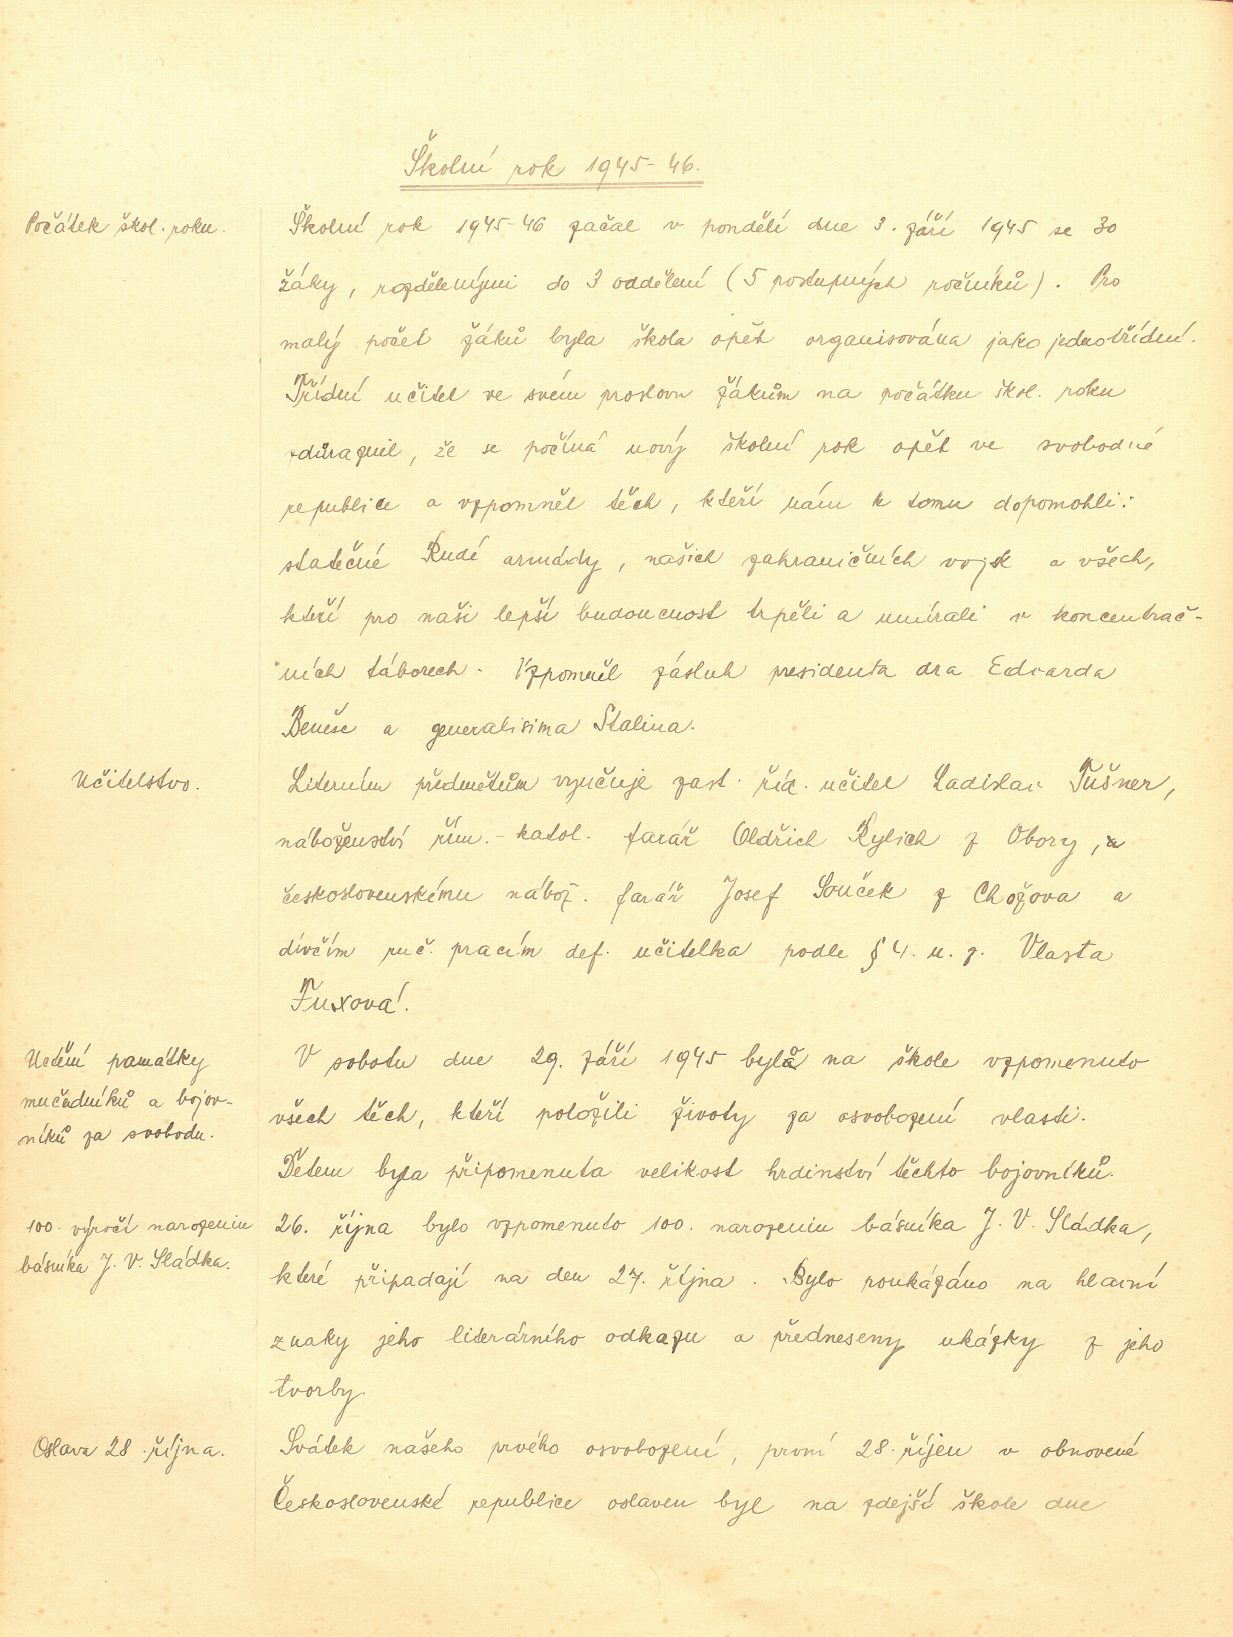 Školní rok 1945-46.
Počátek škol. roku.
Školní rok 1945-46 začal v pondělí dne 3. září 1945 se 30
žáky, rozdělenými do 3 oddělení (5 postupných ročníků). Pro
malý počet žáků byla škola opět organisována jako jednotřídní.
Třídní učitel ve svém proslovu žákům na počátku škol. roku
zdůraznil, že se počíná nový školní rok opět ve svobodné
republice a vzpomněl těch, kteří nám k tomu dopomohli:
statečné Rudé armády, našich zahraničních vojsk a všech,
kteří pro naši lepší budoucnost trpěli a umírali v koncentrač-
ních táborech. Vzpomněl zásluh presidenta dra Edvarda
Beneše a generalisima Stalina.
Učitelstvo.
Literním předmětům vyučuje zast. říd. učitel Ladislav Tušner,
náboženství řím.-katol. farář Oldřich Rylich z Obory, a
československému nábož. farář Josef Souček z Chožova a
dívčím ruč. pracím def. učitelka podle § 4. u. z. Vlasta
Fuxová.
Uctění památky
mučedníků a bojov-
níků za svobodu.
V sobotu dne 29. září 1945 bylo na škole vzpomenuto
všech těch, kteří položili životy za osvobození vlasti.
Dětem byla připomenuta velikost hrdinství těchto bojovníků.
100. výročí narozenin
básníka J. V. Sládka.
26. října bylo vzpomenuto 100. narozenin básníka J. V. Sládka,
které připadají na den 27. října. Bylo poukázáno na hlavní
znaky jeho literárního odkazu a předneseny ukázky z jeho
tvorby.
Oslava 28. října.
Svátek našeho prvého osvobození, první 28. říjen v obnovené
Československé republice oslaven byl na zdejší škole dne